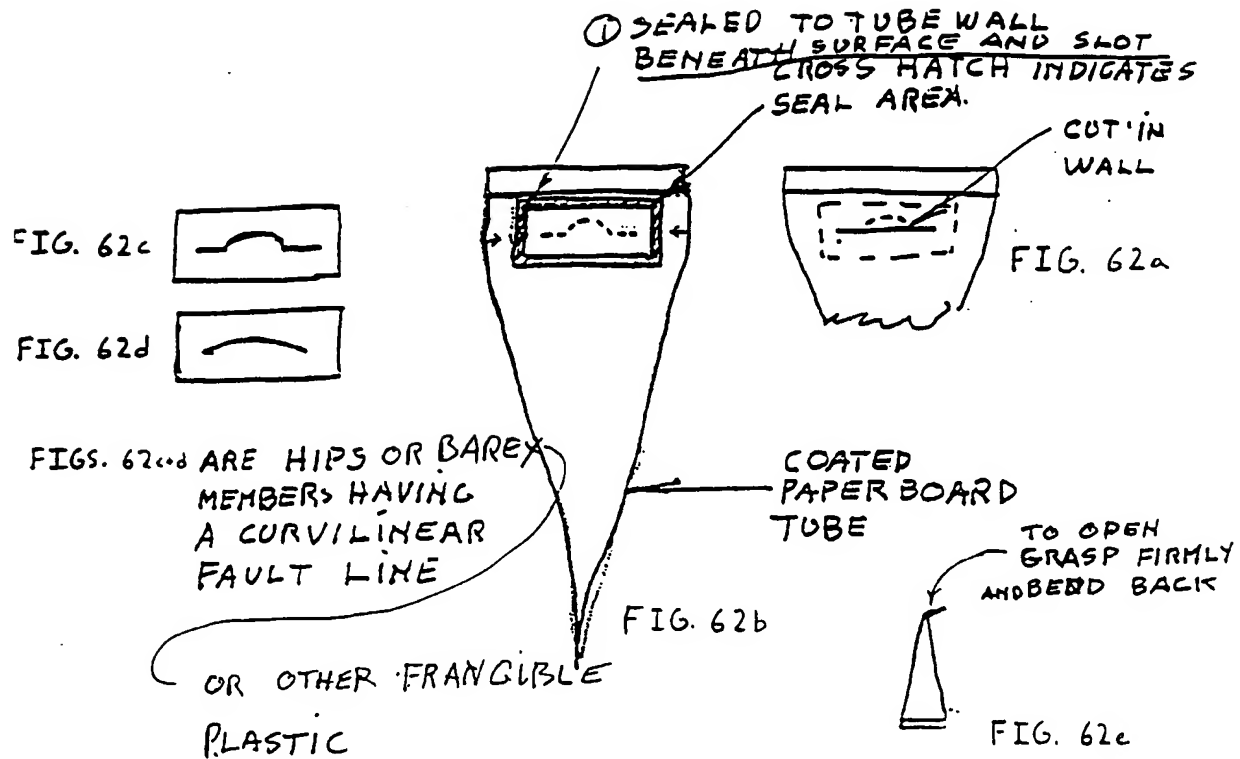 ① SEALED TO TUBE WALL
BENEATH SURFACE AND SLOT
CROSS HATCH INDICATES
SEAL AREA.
CUT IN
WALL
FIG. 62c
FIG. 62a
FIG. 62d
FIGS. 62c+d ARE HIPS OR BAREX
MEMBERS HAVING
A CURVILINEAR
FAULT LINE
COATED
PAPER BOARD
TUBE
TO OPEN
GRASP FIRMLY
AND BEND BACK
FIG. 62b
OR OTHER FRANGIBLE
PLASTIC
FIG. 62e